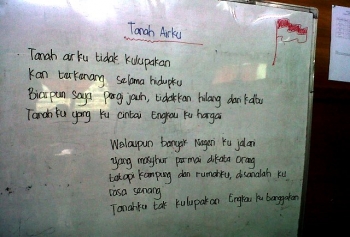 Tanah Airku
Tanah airku tidak kulupakan
Kan terkenang selama hidupku
Biarpun saya pergi jauh, tidakkan hilang dari kalbu
Tanah ku yang ku cintai Engkau ku hargai
Walaupun banyak Negeri ku jalani
yang masyhur permai dikata orang
tetapi kampung dan rumahku, disanalah ku
rasa senang
Tanahku tak kulupakan Engkau ku banggakan